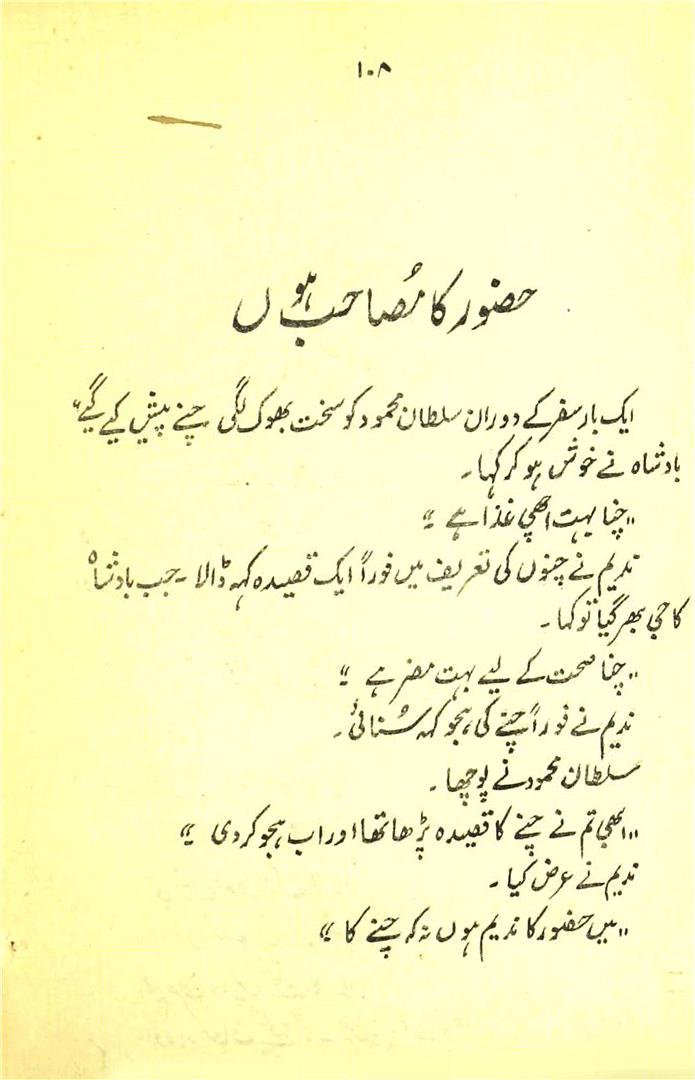 ۱۰۸
حضور کا مُصاحب ہوں
ایک بار سفر کے دوران سلطان محمود کو سخت بھوک لگی چنے پیش کیے گیے
بادشاہ نے خوش ہو کر کہا۔
"چنا بہت اچھی غذا ہے۔"
ندیم نے چنوں کی تعریف میں فوراً ایک قصیدہ کہہ ڈالا۔ جب بادشاہ
کا جی بھر گیا تو کہا۔
"چنا صحت کے لیے بہت مضر ہے"
ندیم نے فوراً چنے کی ہجو کہہ سُنائی۔
سلطان محمود نے پوچھا۔
"ابھی تم نے چنے کا قصیدہ پڑھا تھا اور اب ہجو کر دی۔"
ندیم نے عرض کیا۔
"میں حضور کا ندیم ہوں نہ کہ چنے کا"